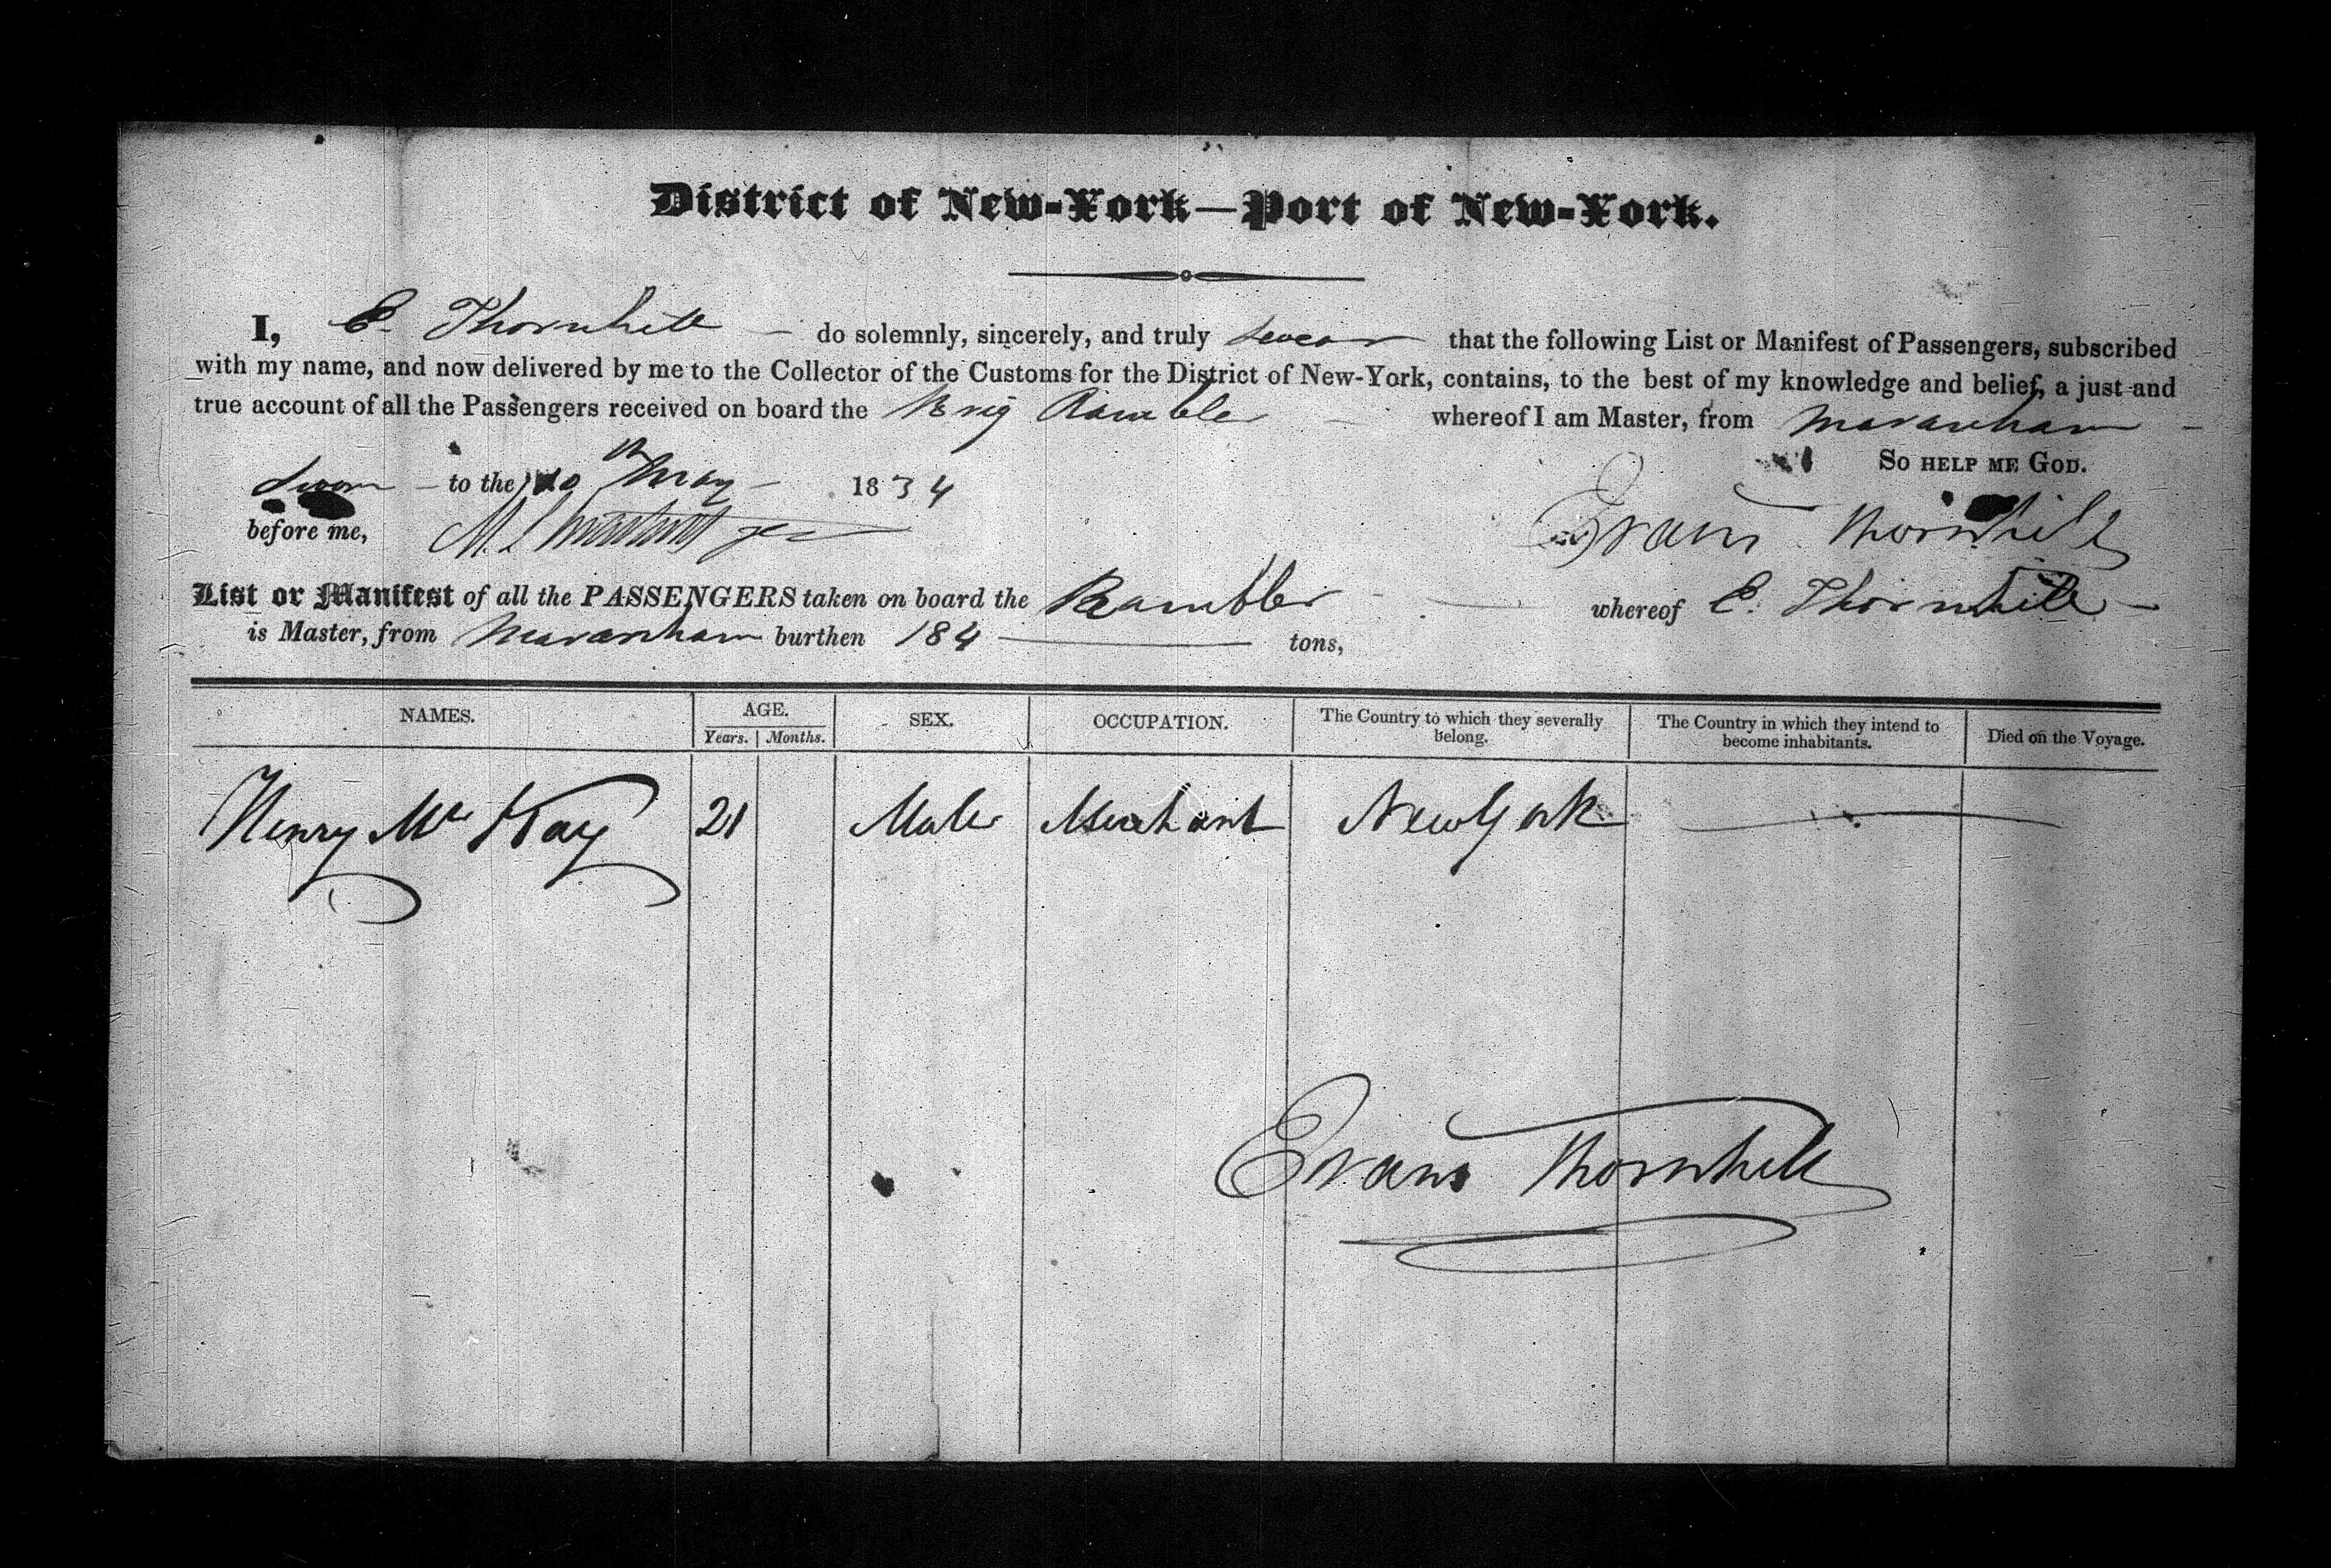 District of New-York—Port of New-York.
I, E. Thornhill — do solemnly, sincerely, and truly swear that the following List or Manifest of Passengers, subscribed
with my name, and now delivered by me to the Collector of the Customs for the District of New-York, contains, to the best of my knowledge and belief, a just and
true account of all the Passengers received on board the Brig Rambler — whereof I am Master, from Maranham —
So help me God.
Sworn — to the 10th May — 1834
before me, Evans Thornhill
List or Manifest of all the PASSENGERS taken on board the Rambler — whereof E. Thornhill —
is Master, from Maranham burthen 184 — tons,
NAMES. AGE. SEX. OCCUPATION. The Country to which they severally belong. The Country in which they intend to become inhabitants. Died on the Voyage.
Years. Months.
Henry Mc Kay 21 Male Merchant New York —
Evans Thornhill